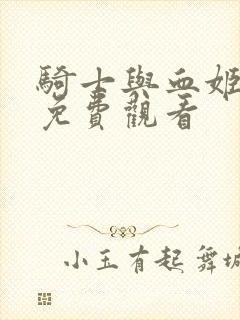 騎士與血姬
免費觀看
小玉有起舞